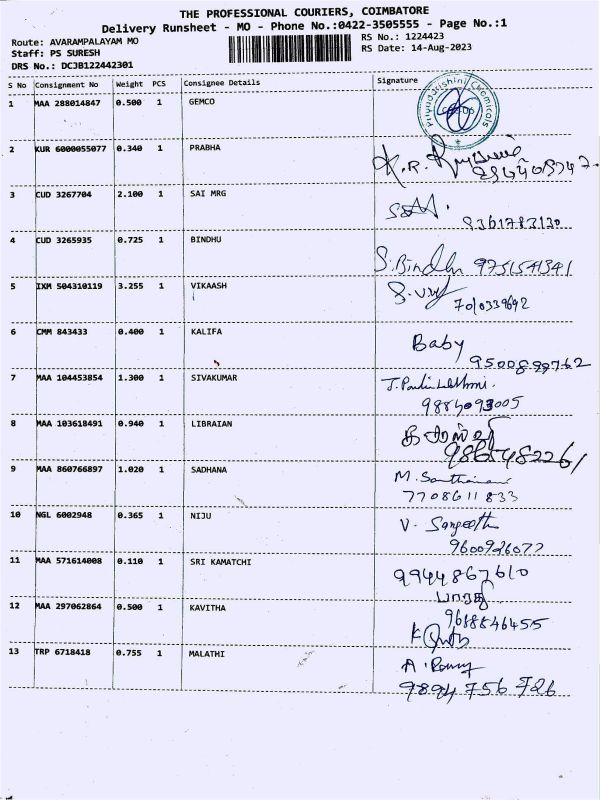 THE PROFESSIONAL COURIERS, COIMBATORE
Delivery Runsheet - MO - Phone No.:0422-3505555 - Page No.:1
Route: AVARAMPALAYAM MO
RS No.: 1224423
Staff: PS SURESH
RS Date: 14-Aug-2023
DRS No.: DCJB122442301
S No Consignment No Weight PCS Consignee Details Signature
Priyadarshini Chemicals
1 MAA 288014847 0.500 1 GEMCO
2 KUR 6000055077 0.340 1 PRABHA K.R.
3 CUD 3267704 2.100 1 SAI MRG
9361783130
4 CUD 3265935 0.725 1 BINDHU
S. Bindhu 9751541341
5 IXM 504310119 3.255 1 VIKAASH
7010339692
6 CMM 843433 0.400 1 KALIFA Baby
9500899762
7 MAA 104453854 1.300 1 SIVAKUMAR
9884093005
8 MAA 103618491 0.940 1 LIBRAIAN
9865482261
9 MAA 860766897 1.020 1 SADHANA M.
7708611833
10 NGL 6002948 0.365 1 NIJU V. Sangeetha
9600926077
11 MAA 571614008 0.110 1 SRI KAMATCHI
9944867610
பாரதி
12 MAA 297062864 0.500 1 KAVITHA 9688846455
K
13 TRP 6718418 0.755 1 MALATHI A.
9894 756 726